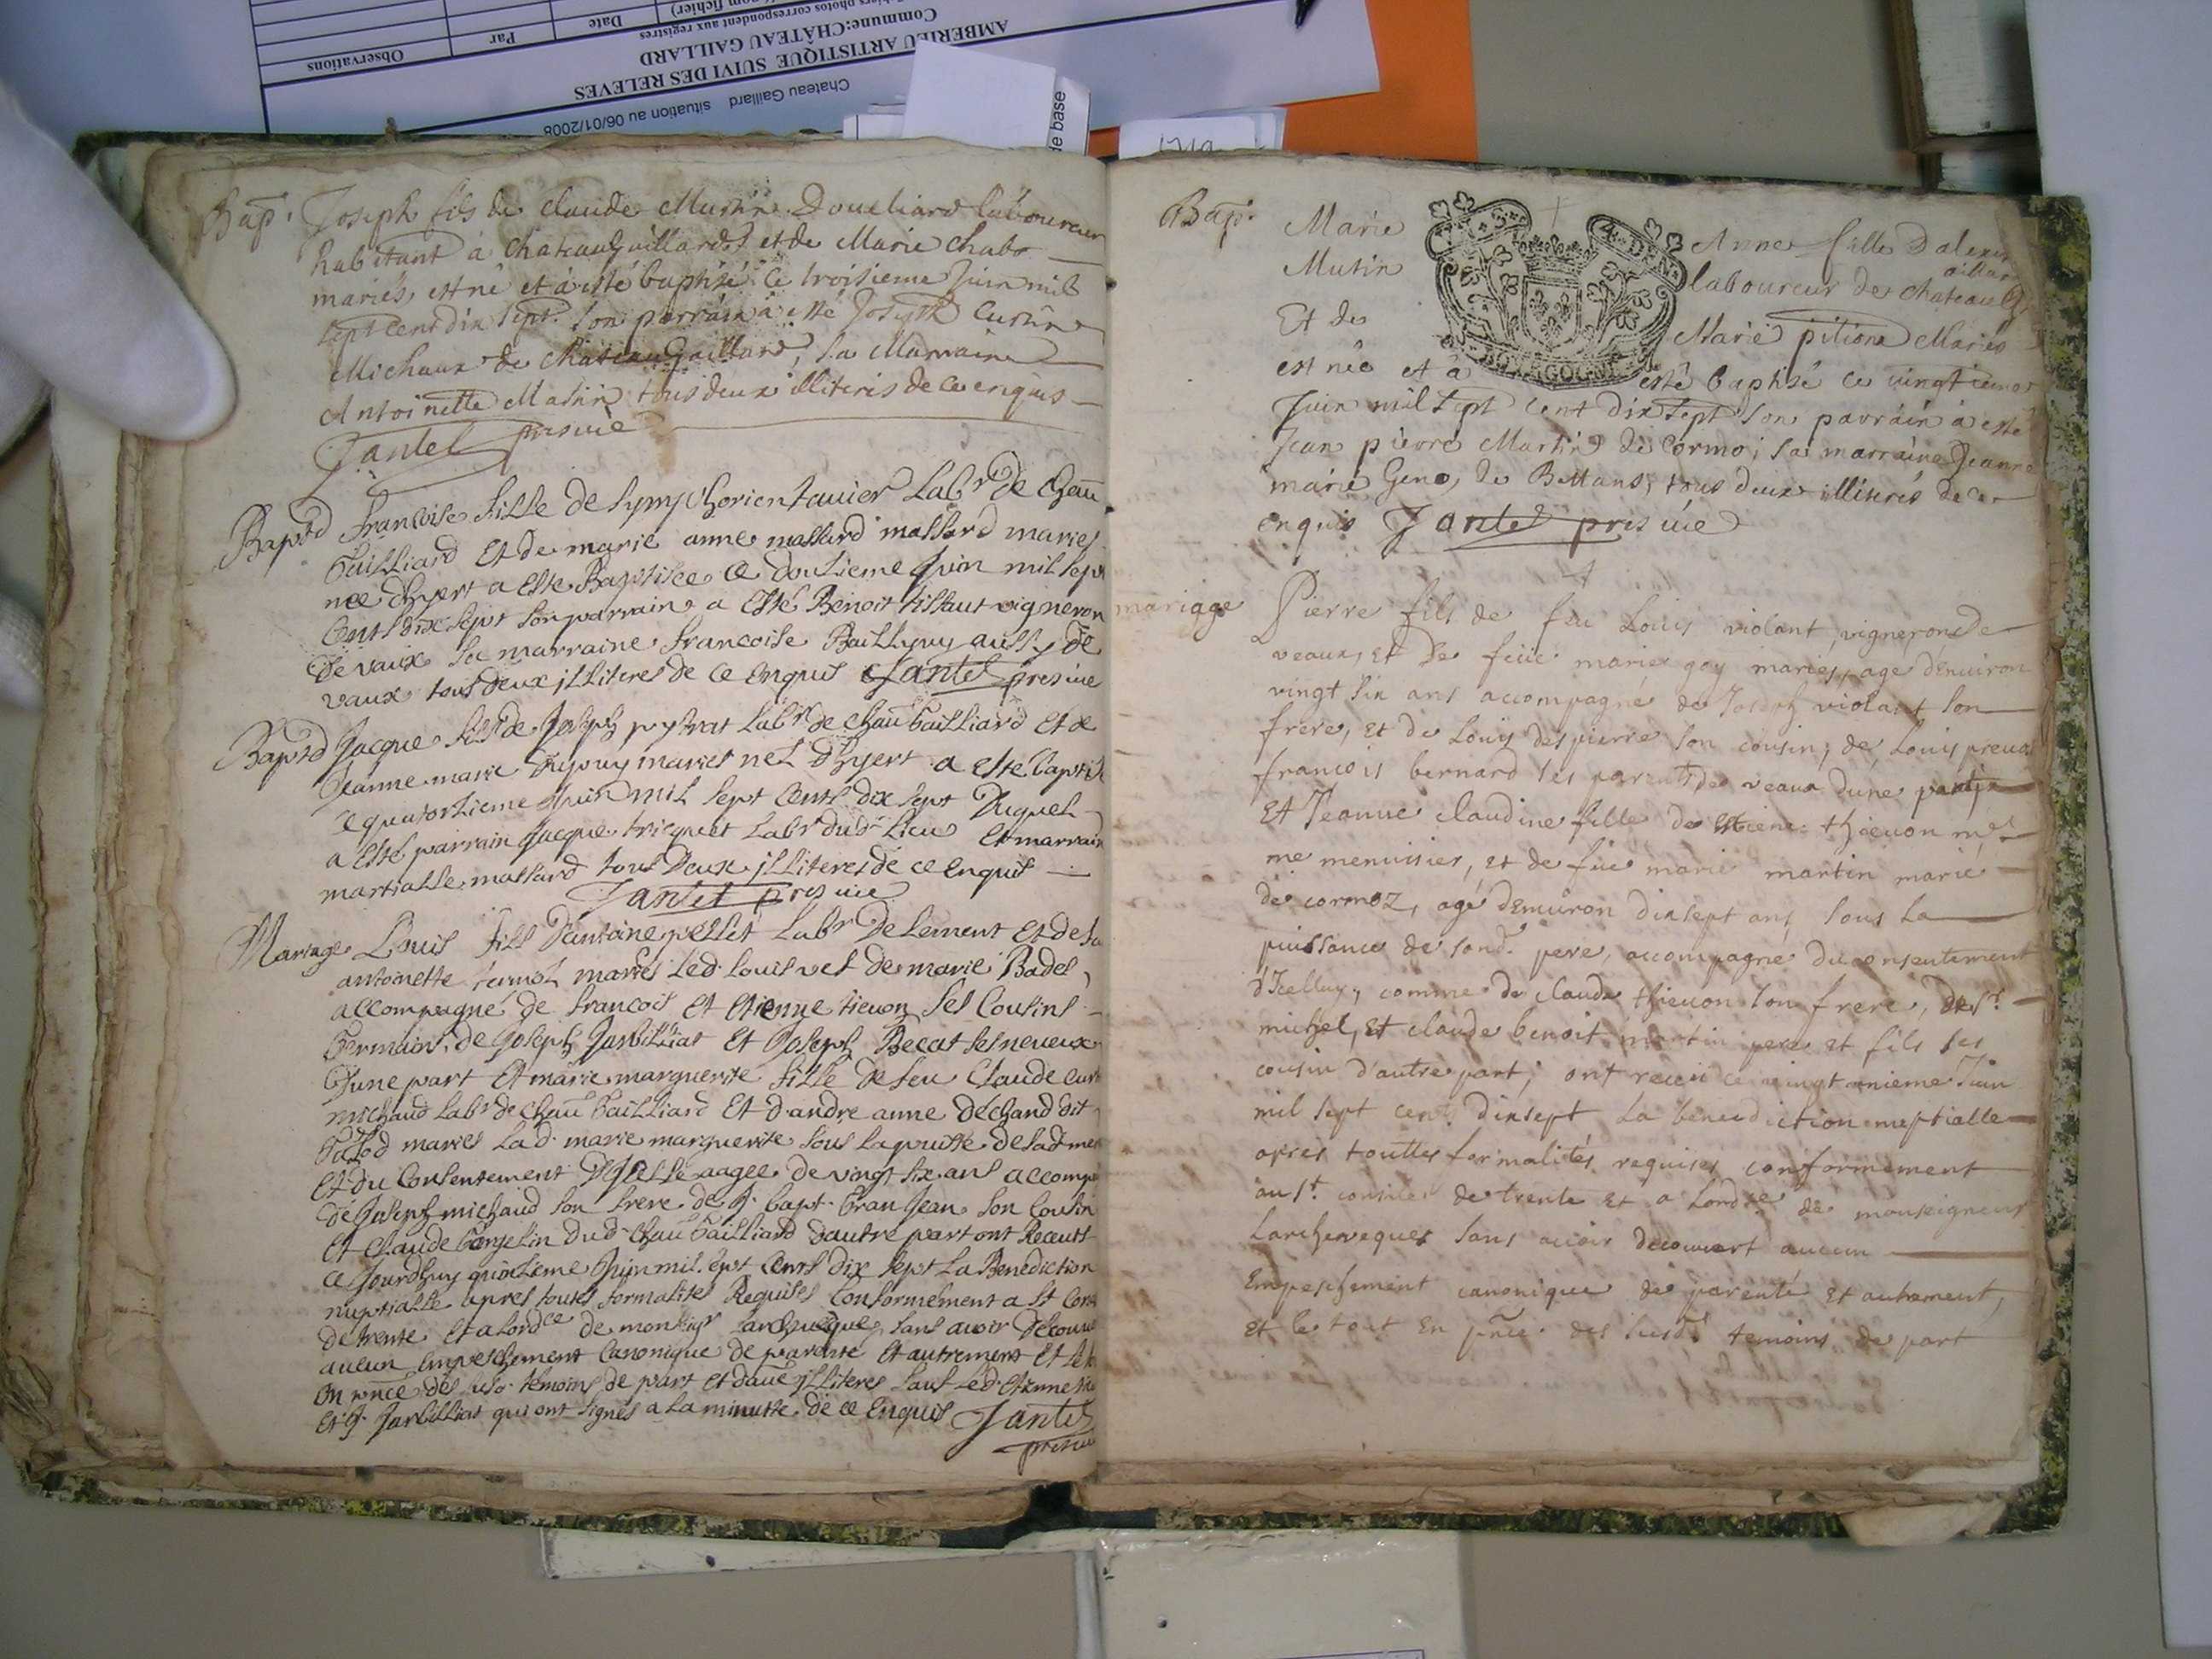 Observations
Par
Date
Commune:CHÂTEAU GAILLARD
AMBERIEU ARTISTIQUE SUIVI DES RELEVES
Chateau Gaillard situation au 06/01/2008
de base
Bap. Joseph fils de claude Mutin Doueliard laboureur
habitant à chateau gaillard et de Marie chabo
mariés, est né et à esté baptisé ce troisieme Juin mil
sept cent dix sept. son parrain à esté Joseph Curtin
Michaux de chateau gaillard, sa Marraine
Antoinette Matin tous deux illiteris de ce enquis
Jantet pres uic
Bapt francoise fille de symphorien tauier Labr de chau
Gailliard Et de marie anne massard mariés
nee dhyert a Este Baptisee ce douzieme Juin mil sept
Cents dix sept son parrain a Esté Benoit tissaut vigneron
De vaux sa marraine francoise Baillyuy aussy de
vaux tous deux illiteres de ce Enquis Jantet pres uic
Bapt Jacque fils de Joseph pytrat Labr de chau Gailliard Et de
Jeanne marie Dupuy mariés nez Dhyert a Este baptisé
le quatorzieme Juin mil sept Cents dix sept Duquel
a Esté parrain Jacque tricquet Labr dud lieu Et marraine
martialle massard tous Deux illiteres de ce Enquis
Jantet pres uic
Mariage Louis fils D'antoine pellet Labr De Lement Et de fu
antoinette mariés Led. Louis vef de marie Badel
accompagné de francois Et Etienne tieuon ses Cousins
Germains, de Joseph Janbilliat Et Joseph Becat ses neveux
d'une part Et marie marguerite fille de feu Claude curt
michaud Labr de chau Gailliard Et d'andre anne Dechand dit
mariés Lad. marie marguerite sous la puisse de sad mere
Et du Consentement D'Jcelle aagee de vingt six ans accomp
de Joseph michaud son frere de J. bapt. bran Jean son Cousin
Et Claude dud chau Gailliard dautre part ont Receus
ce Jourdhuy quinzieme Juin mil sept Cents dix sept La Benediction
nuptialle apres toutes formalites Requises Conformement a St Con
de trente Et a lordce de monseigr Larcheveque sans avoir Decouve
aucun Empeschement Canonique de parente Et autrement Et le t
En pnce des susd. temoins de part Et d'autre illiteres sauf Led. Etienne tie
et J. Janbilliat qui ont signés a La minutte de ce Enquis Jantet
pres uic
Bap. Marie Anne fille D'alexis
Mutin laboureur de chateau g
aillar
Et de Marie pitiona Mariés
est née et à esté baptisé ce vingtieme
Juin mil sept cent dix sept son parrain à esté
Jean pierre Martin de Cormo; sa marraine Jeanne
marie Geno, de Bettans; tous deux illiterés de ce
enquis Jantet pres uic
mariage Pierre fils de feu Louis violant vigneron de
veaux, et de feüe marie goy mariés, age d'enuiron
vingt six ans accompagné de Joseph violant son
frere, et de Louis despierre son cousin, de Louis preuo
francois bernard ses parents de veaux dune part
Et Jeanne claudine fille de Etiene thieuon me
me menuisier, et de füe marie martin marié
de cormoz, agé denuiron dixsept ans sous la
puissance de sond. pere, accompagné du consentement
d'Icelluy, comme de claude thieuon son frere, de Sr
michel, et claude benoit martin pere et fils ses
cousin d'autre part; ont receu ce vingt unieme Juin
mil sept cent dixsept la benediction nuptialle
apres touttes formalités requises conformement
au St concile de trente et a Lordce de monseigneur
Larcheveque sans avoir decouvert aucun
Empeschement canonique de parenté et autrement,
et le tout En pnce des susd. temoins de part